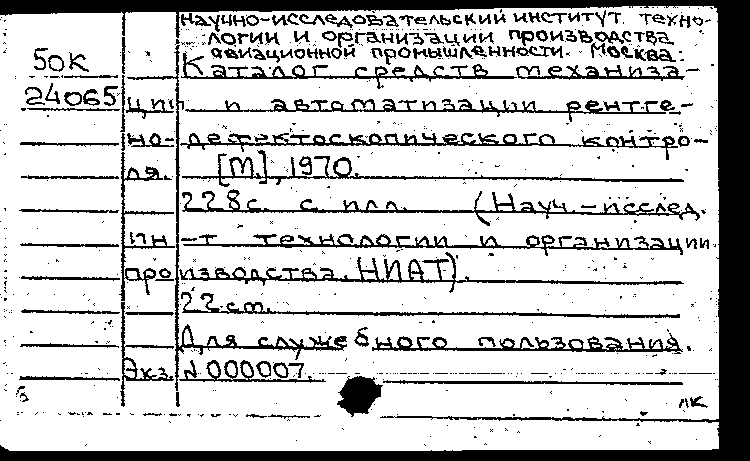 Научно-исследовательский институт техно-
логии и организации производства
авиационной промышленности. Москва.
50К
Каталог средств механиза-
24065
ции и автоматизации рентге-
но-дефектоскопического контро-
ля. [М.], 1970.
228с. с илл. (Науч.-исслед.
ин-т технологии и организации
производства. НИАТ).
22 см.
Для служебного пользования.
Экз. N 000007.
лк